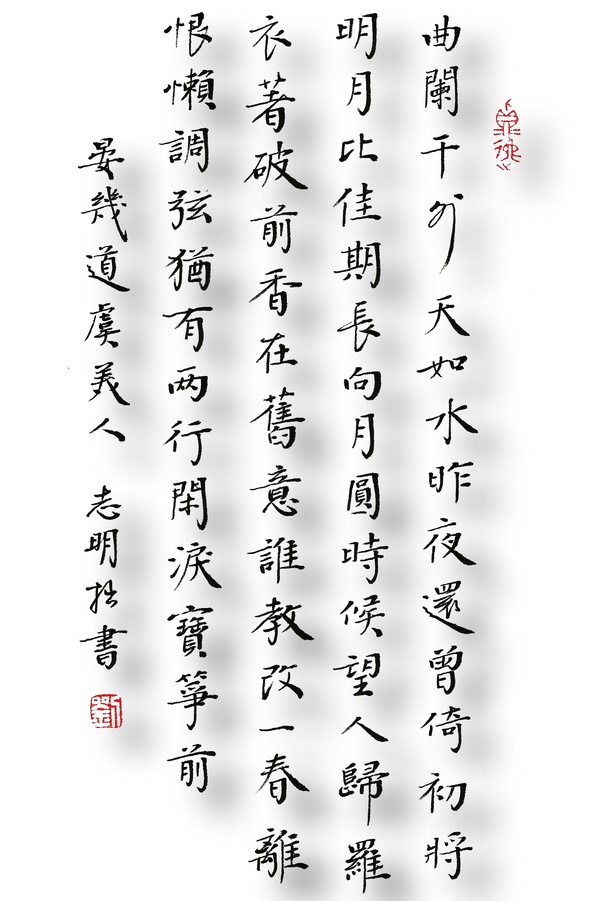 曲闌干外天如水昨夜還曾倚初將
明月比佳期長向月圓時候望人歸羅
衣著破前香在舊意誰教改一春離
恨懶調弦猶有两行閑淚寶箏前
晏幾道虞美人 志明拙書
劉